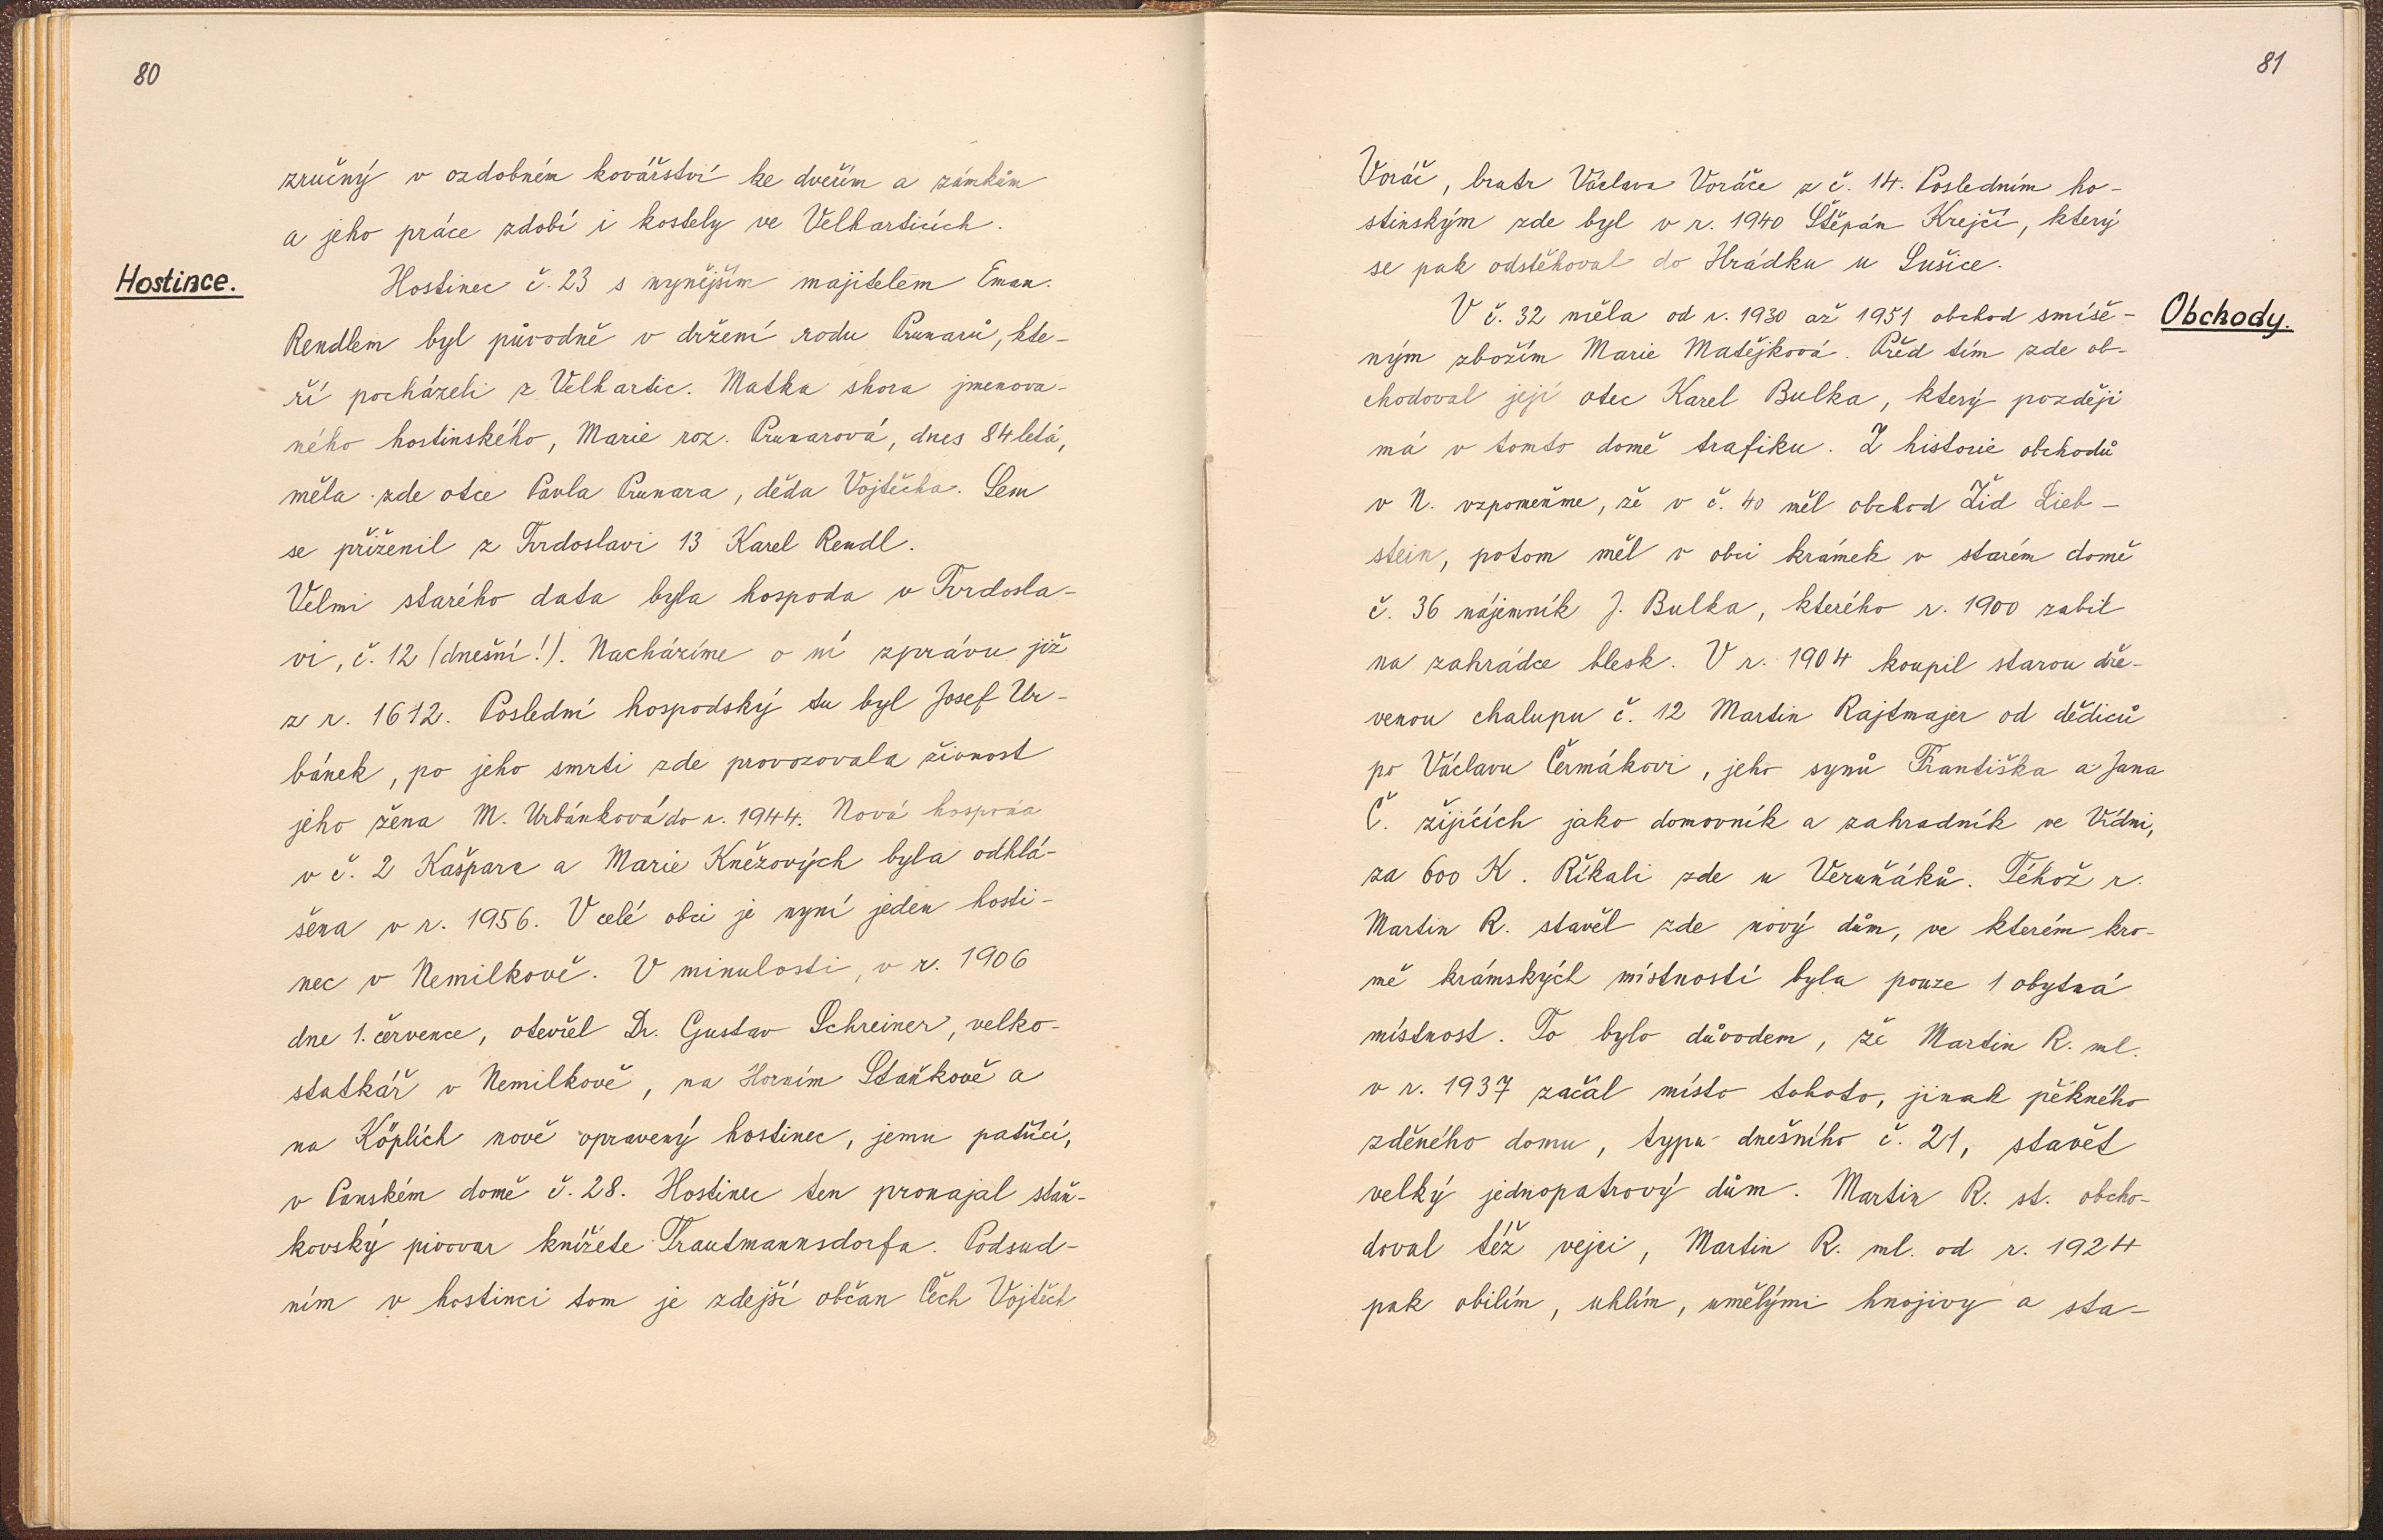 80
zručný v ozdobném kovářství ke dveřím a zámkům
a jeho práce zdobí i kostely ve Velharticích.
Hostince.
Hostinec č. 23 s nynějším majitelem Eman.
Rendlem byl původně v držení rodu Prunarů, kte-
ří pocházeli z Velhartic. Matka shora jmenova-
ného hostinského, Marie roz. Prunarová, dnes 84letá,
měla zde otce Pavla Prunara, děda Vojtěcha. Sem
se přiženil z Tvrdoslavi 13 Karel Rendl.
Velmi starého data byla hospoda v Tvrdosla-
vi, č. 12 (dnešní!). Nacházíme o ní zprávu již
z r. 1612. Poslední hospodský tu byl Josef Ur-
bánek, po jeho smrti zde provozovala živnost
jeho žena M. Urbánková do r. 1944. Nová hospoda
v č. 2 Kašpara a Marie Knězových byla odhlá-
šena v r. 1956. V celé obci je nyní jeden hosti-
nec v Nemilkově. V minulosti, v r. 1906
dne 1. července, otevřel Dr. Gustav Schreiner, velko-
statkář v Nemilkově, na Horním Staňkově a
na Köplích nově opravený hostinec, jemu patřící,
v Panském domě č. 28. Hostinec ten pronajal staň-
kovský pivovar knížete Trautmannsdorfa. Podsud-
ním v hostinci tom je zdejší občan Čech Vojtěch
81
Voráč, bratr Václava Voráče z č. 14. Posledním ho-
stinským zde byl v r. 1940 Štěpán Krejčí, který
se pak odstěhoval do Hrádku u Sušice.
Obchody.
V č. 32 měla od r. 1930 až 1951 obchod smíše-
ným zbožím Marie Matějková. Před tím zde ob-
chodoval její otec Karel Bulka, který později
má v tomto domě trafiku. Z historie obchodů
v N. vzpomeňme, že v č. 40 měl obchod Žid Lieb-
stein, potom měl v obci krámek v starém domě
č. 36 nájemník J. Bulka, kterého r. 1900 zabil
na zahrádce blesk. V r. 1904 koupil starou dře-
venou chalupu č. 12 Martin Rajtmajer od dědiců
po Václavu Čermákovi, jeho synů Františka a Jana
Č. žijících jako domovník a zahradník ve Vídni,
za 600 K. Říkali zde u Veruňáků. Téhož r.
Martin R. stavěl zde nový dům, ve kterém kro-
mě krámských místností byla pouze 1 obytná
místnost. To bylo důvodem, že Martin R. ml.
v r. 1937 začal místo tohoto, jinak pěkného
zděného domu, typu dnešního č. 21, stavět
velký jednopatrový dům. Martin R. st. obcho-
doval též vejci, Martin R. ml. od r. 1924
pak obilím, uhlím, umělými hnojivy a sta-